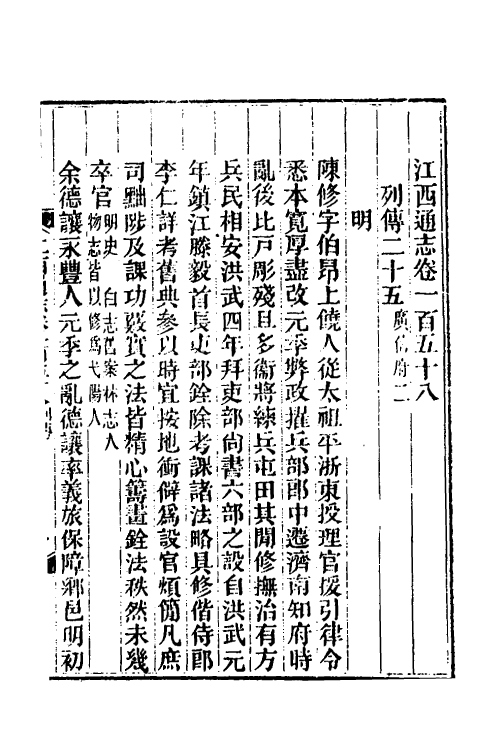 江西通志卷一百五十八
列傳二十五廣信府二
明
陳修字伯昂上饒人從太祖平浙東授理官援引律令
悉本寬厚盡改元季弊政擢兵部郎中遷濟南知府時
亂後比戸彫殘且多衞將練兵屯田其閒修撫治有方
兵民相安洪武四年拜吏部尙書六部之設自洪武元
年鎭江滕毅首長吏部銓除考課諸法略具修偕侍郎
李仁詳考舊典參以時宜按地衝僻爲設官煩簡凡庶
司黜陟及課功覈實之法皆精心籌畫銓法秩然未幾
卒官明史 白志舊案林志人物志皆以修爲弋陽人
余德讓永豐人元季之亂德讓率義旅保障鄉邑明初